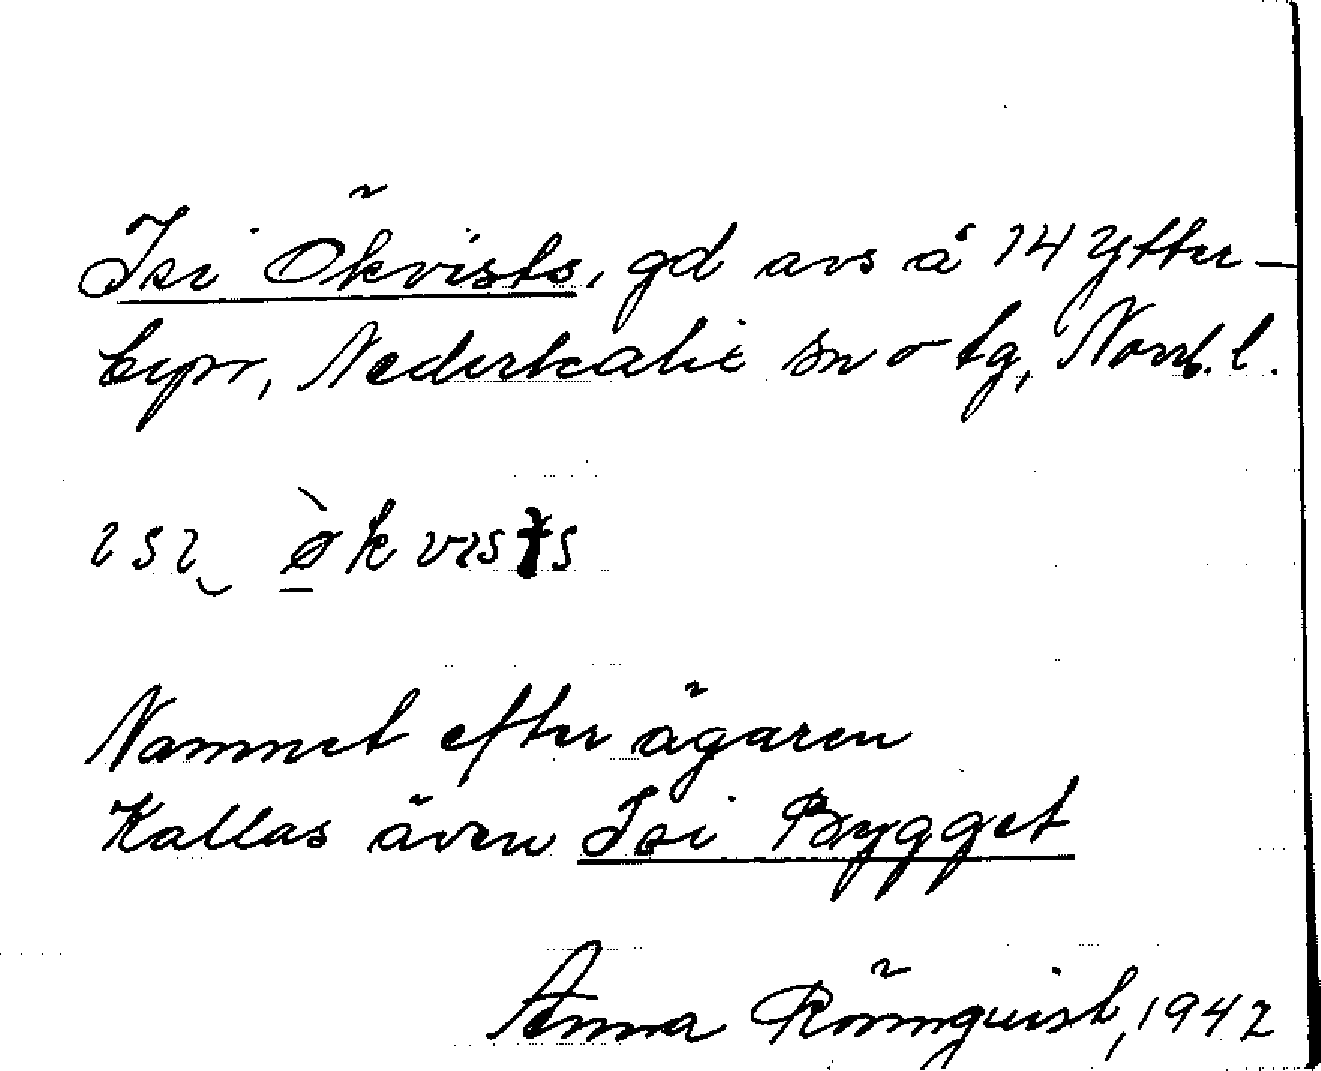 Isi Ökvists, gd avs å 14 Ytter-
byn, Nederkalix sn o tg, Norrb. l.
ɩsɩ̮ ø̠̀kvɩsts
Namnet efter ägaren
Kallas även Isi Bygget
Anna Rönnquist, 1942